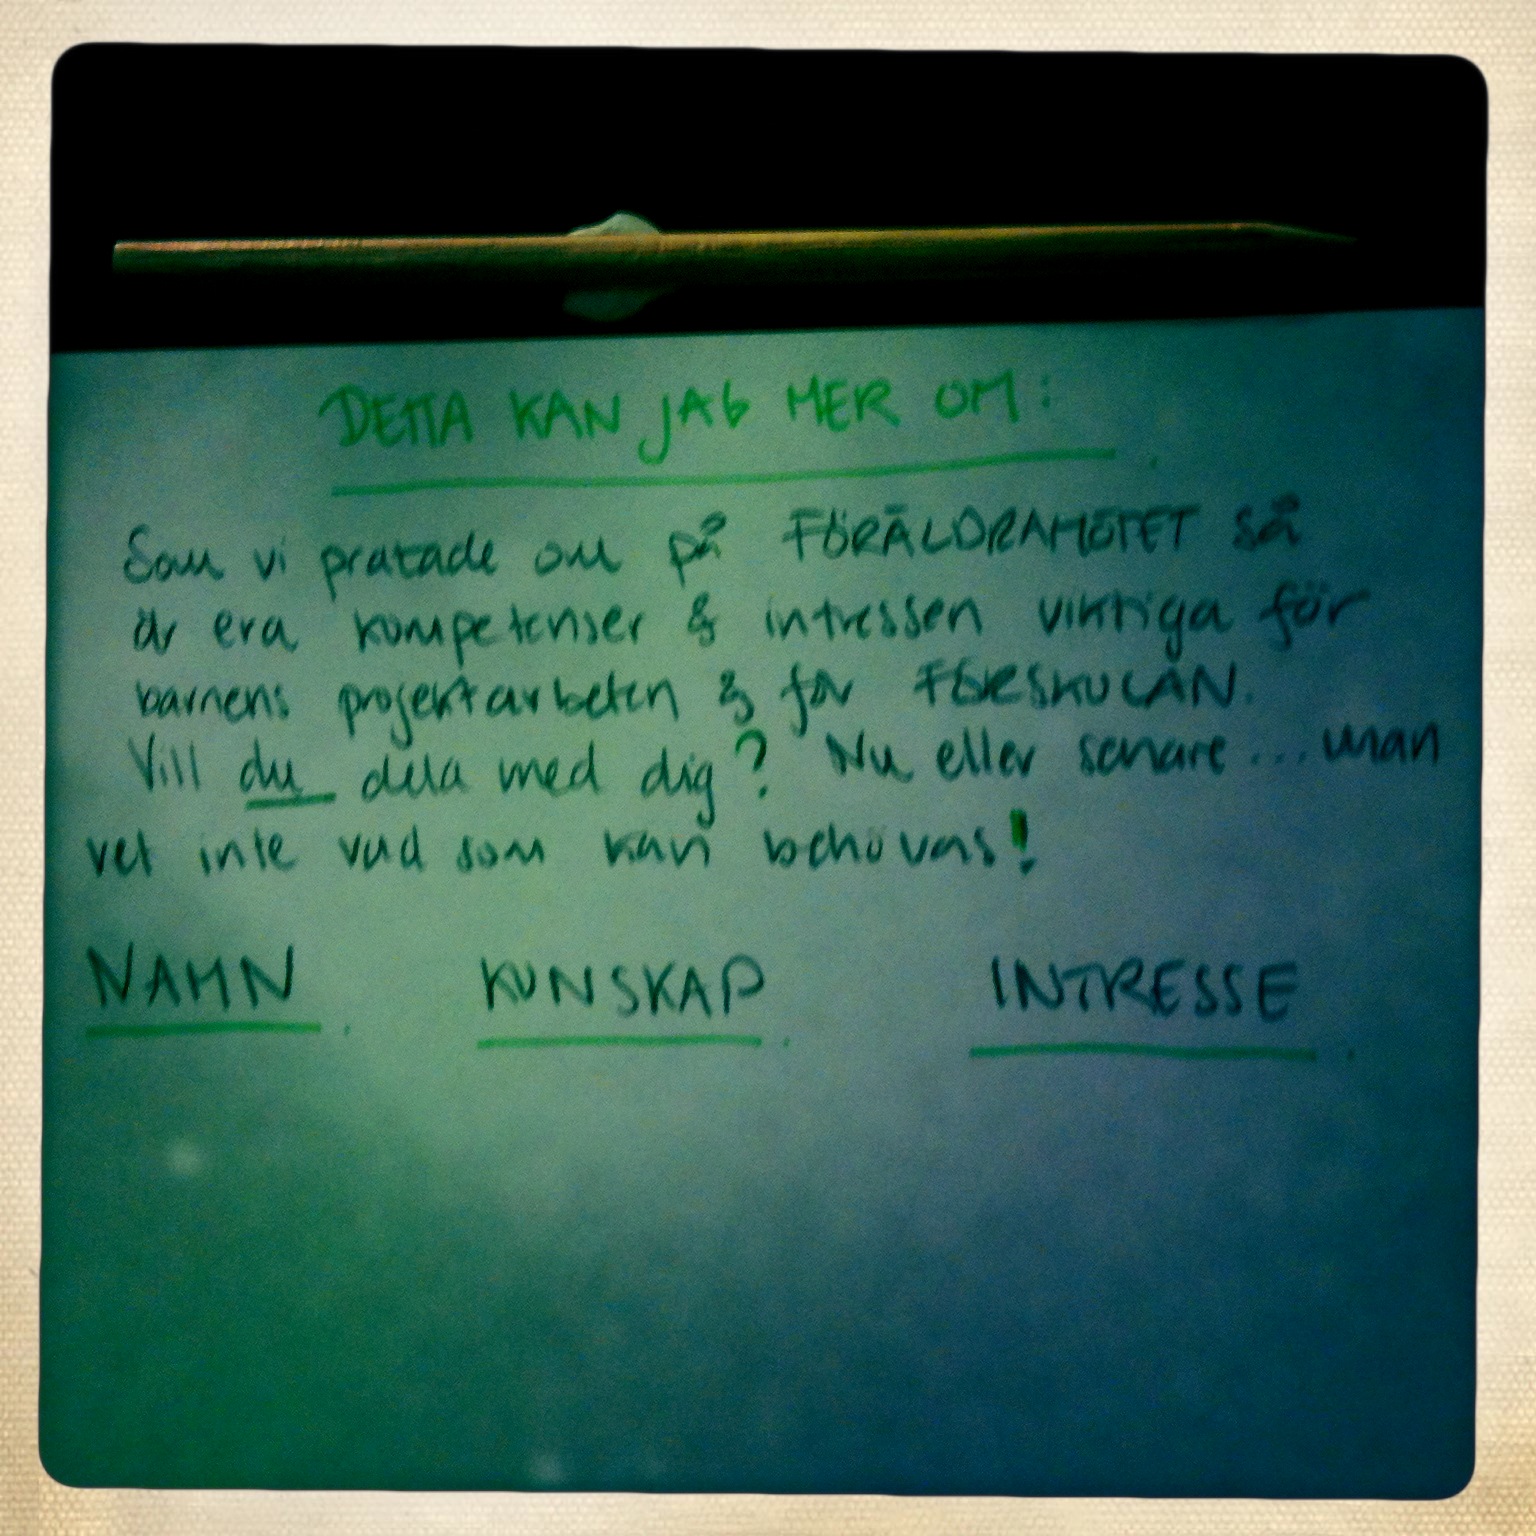 DETTA KAN JAG MER OM:
Som vi pratade om på FÖRÄLDRAMÖTET så
är era kompetenser & intressen viktiga för
barnens projektarbeten & för FÖRSKOLAN.
Vill du dela med dig? Nu eller senare... man
vet inte vad som kan behövas!
NAMN KUNSKAP INTRESSE